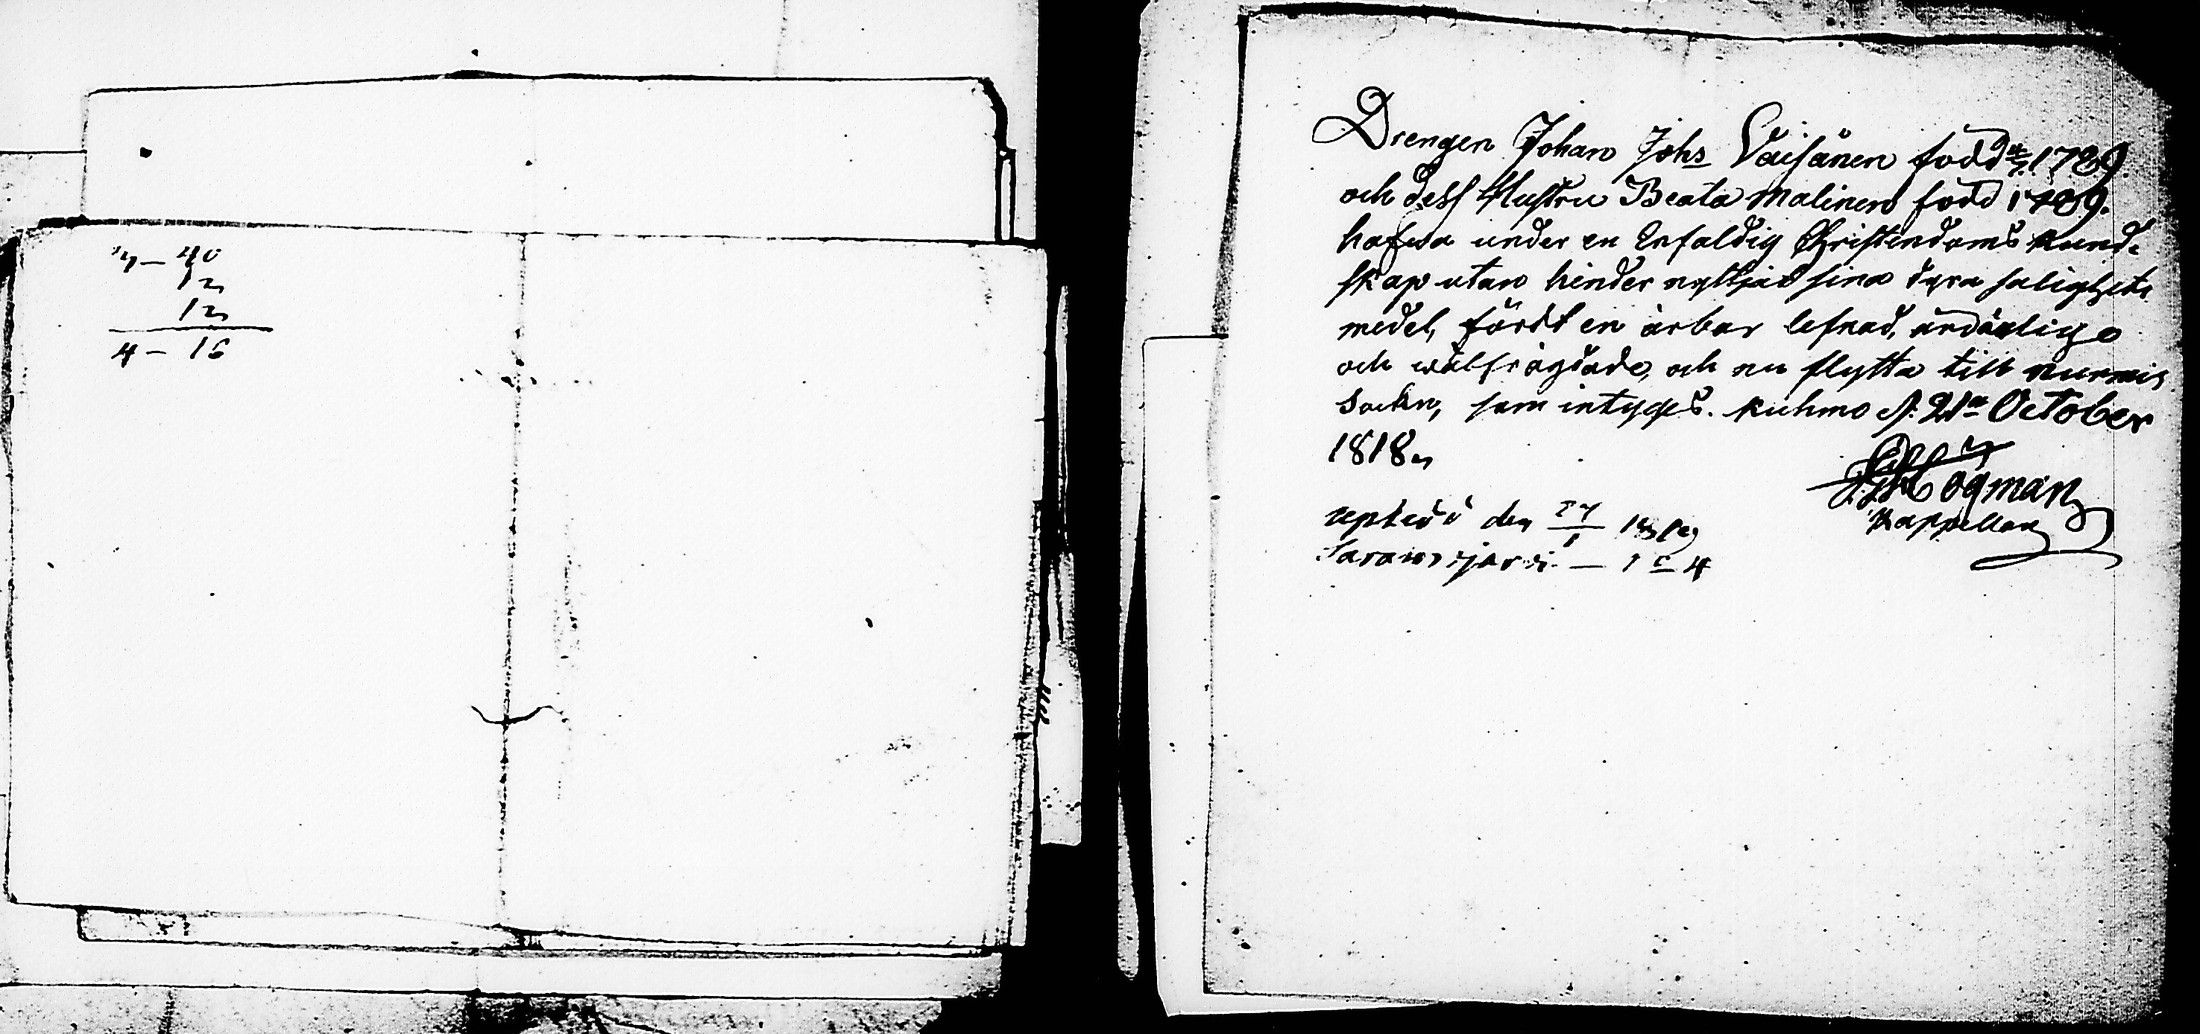 4 — 40
12
12
4 — 16
Drengen Johan Johs Väisänen född 1789.
och dess Hustru Beata Malinen född 1789.
hafwa under en Enfaldig Christendoms kund-
skap utan hinder nyttjat sina dyra salighets
medel, fördt en ärbar lefnad, ärdärlige
och wälfrägdade, och nu flytta till Nurmis
Sockn, som intyges. Kuhmo d. 21a October
1818.
Högman
Kappellan
den 27/1 1819
Saramojärvi — 1 4